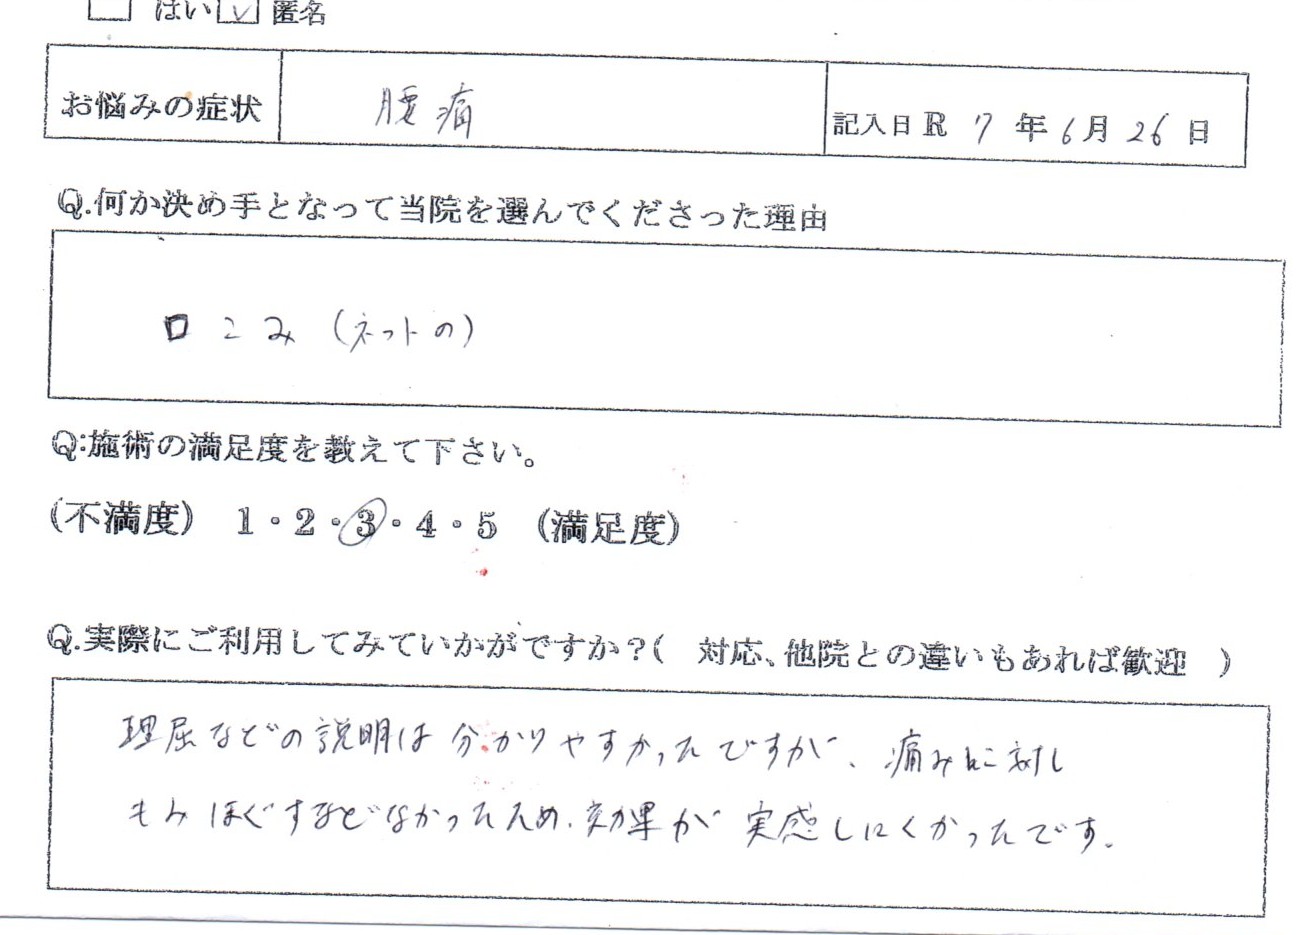 はい 匿名
お悩みの症状 腰痛 記入日 R 7 年 6 月 26 日
Q.何か決め手となって当院を選んでくださった理由
口こみ (ネットの)
Q:施術の満足度を教えて下さい。
(不満度) 1・2・3・4・5 (満足度)
Q.実際にご利用してみていかがですか?( 対応、他院との違いもあれば歓迎 )
理屈などの説明は分かりやすかったですが、痛みに対し
もみほぐすなどなかったため、効果が実感しにくかったです。